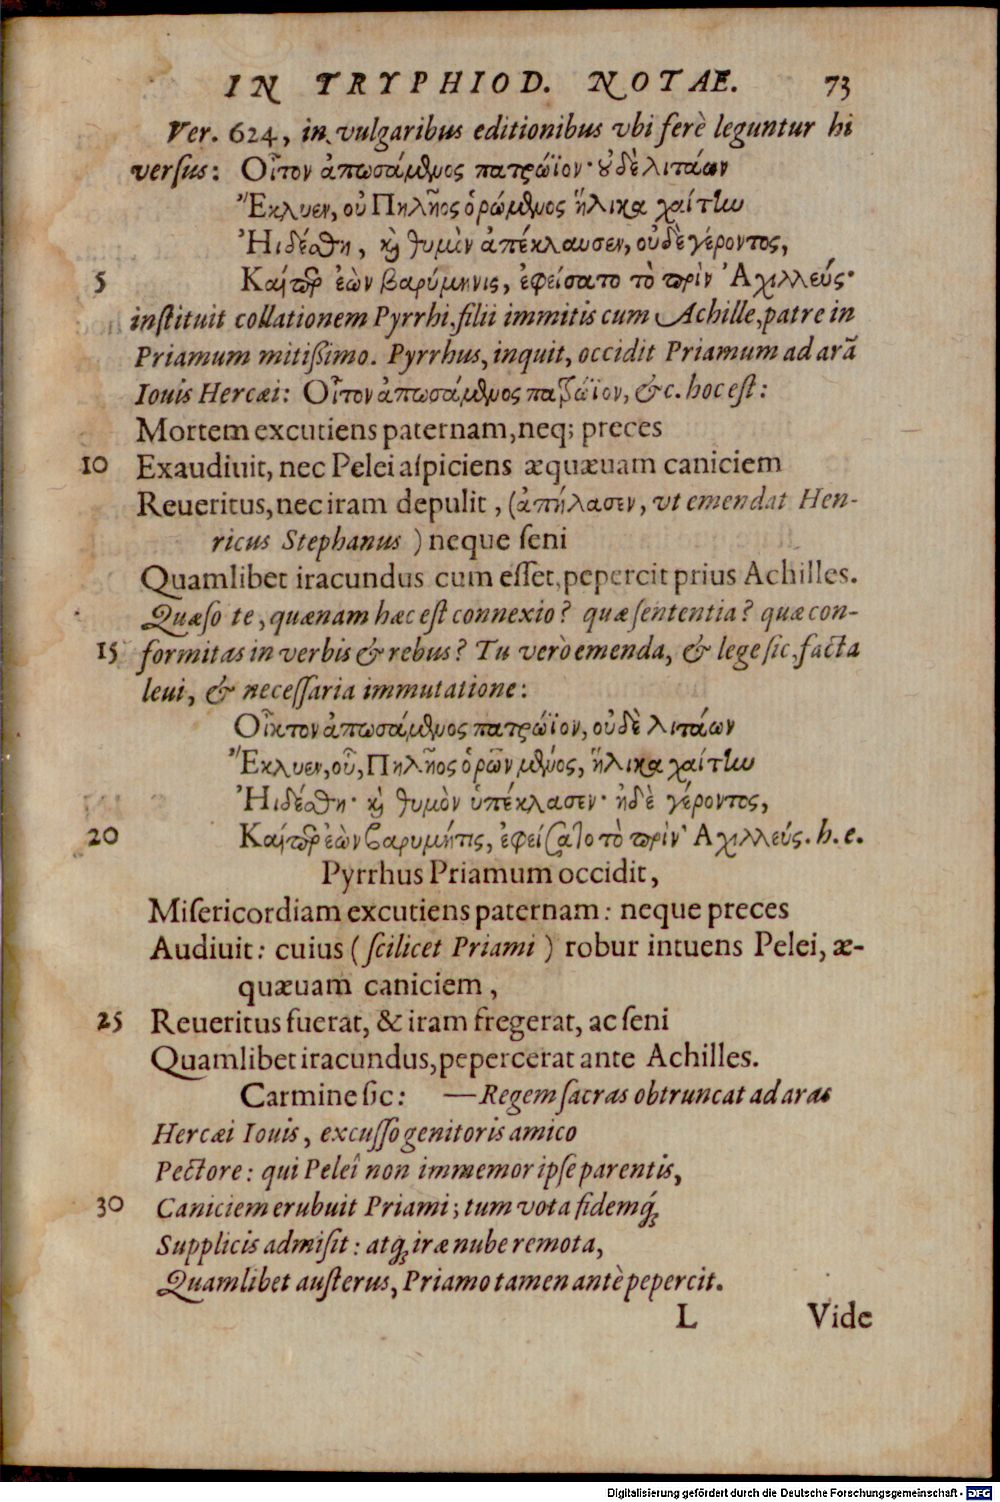 IN TRYPHIOD. NOTAE. 73
Ver. 624, in vulgaribus editionibus vbi ferè leguntur hi
versus: Οἶτον ἀπωσάμθμος πατρώϊον· ȣδὲ λιτάων
Ἔκλυεν, οὐ Πηλῆος ὁρώμθμος ἥλικα χαίτην
Ἠιδέσθη, κὶ θυμὸν ἀπέκλαυσεν, οὐδὲ γέροντος,
5 Καίπερ ἐὼν βαρύμηνις, ἐφείσατο τὸ πρὶν Ἀχιλλεύς·
instituit collationem Pyrrhi, filii immitis cum Achille, patre in
Priamum mitißimo. Pyrrhus, inquit, occidit Priamum ad arã
Iouis Hercæi: Οἶτον ἀπωσάμθμος πατρώϊον, &c. hoc est:
Mortem excutiens paternam, neq; preces
10 Exaudiuit, nec Pelei aspiciens æquæuam caniciem
Reueritus, nec iram depulit, (ἀπήλασεν, vt emendat Hen-
ricus Stephanus) neque seni
Quamlibet iracundus cum esset, pepercit prius Achilles.
Quæso te, quænam hæc est connexio? quæ sententia? quæ con-
15 formitas in verbis & rebus? Tu verò emenda, & lege sic, facta
leui, & necessaria immutatione:
Οἶκτον ἀπωσάμθμος πατρώϊον, οὐδὲ λιτάων
Ἔκλυεν, οὗ, Πηλῆος ὁρῶν μθμός, ἥλικα χαίτην
Ἠιδέσθη· κὶ θυμὸν ὑπέκλασεν· ἠδὲ γέροντος,
20 Καίπερ ἐὼν βαρυμήτις, ἐφείσατο τὸ πρὶν Ἀχιλλεύς. h. e.
Pyrrhus Priamum occidit,
Misericordiam excutiens paternam: neque preces
Audiuit: cuius (scilicet Priami) robur intuens Pelei, æ-
quæuam caniciem,
25 Reueritus fuerat, & iram fregerat, ac seni
Quamlibet iracundus, pepercerat ante Achilles.
Carmine sic: —Regem sacras obtruncat ad aras
Hercæi Iouis, excusso genitoris amico
Pectore: qui Peleî non immemor ipse parentis,
30 Caniciem erubuit Priami; tum vota fidemq́;
Supplicis admisit: atq́; iræ nube remota,
Quamlibet austerus, Priamo tamen antè pepercit.
L Vide
Digitalisierung gefördert durch die Deutsche Forschungsgemeinschaft - DFG